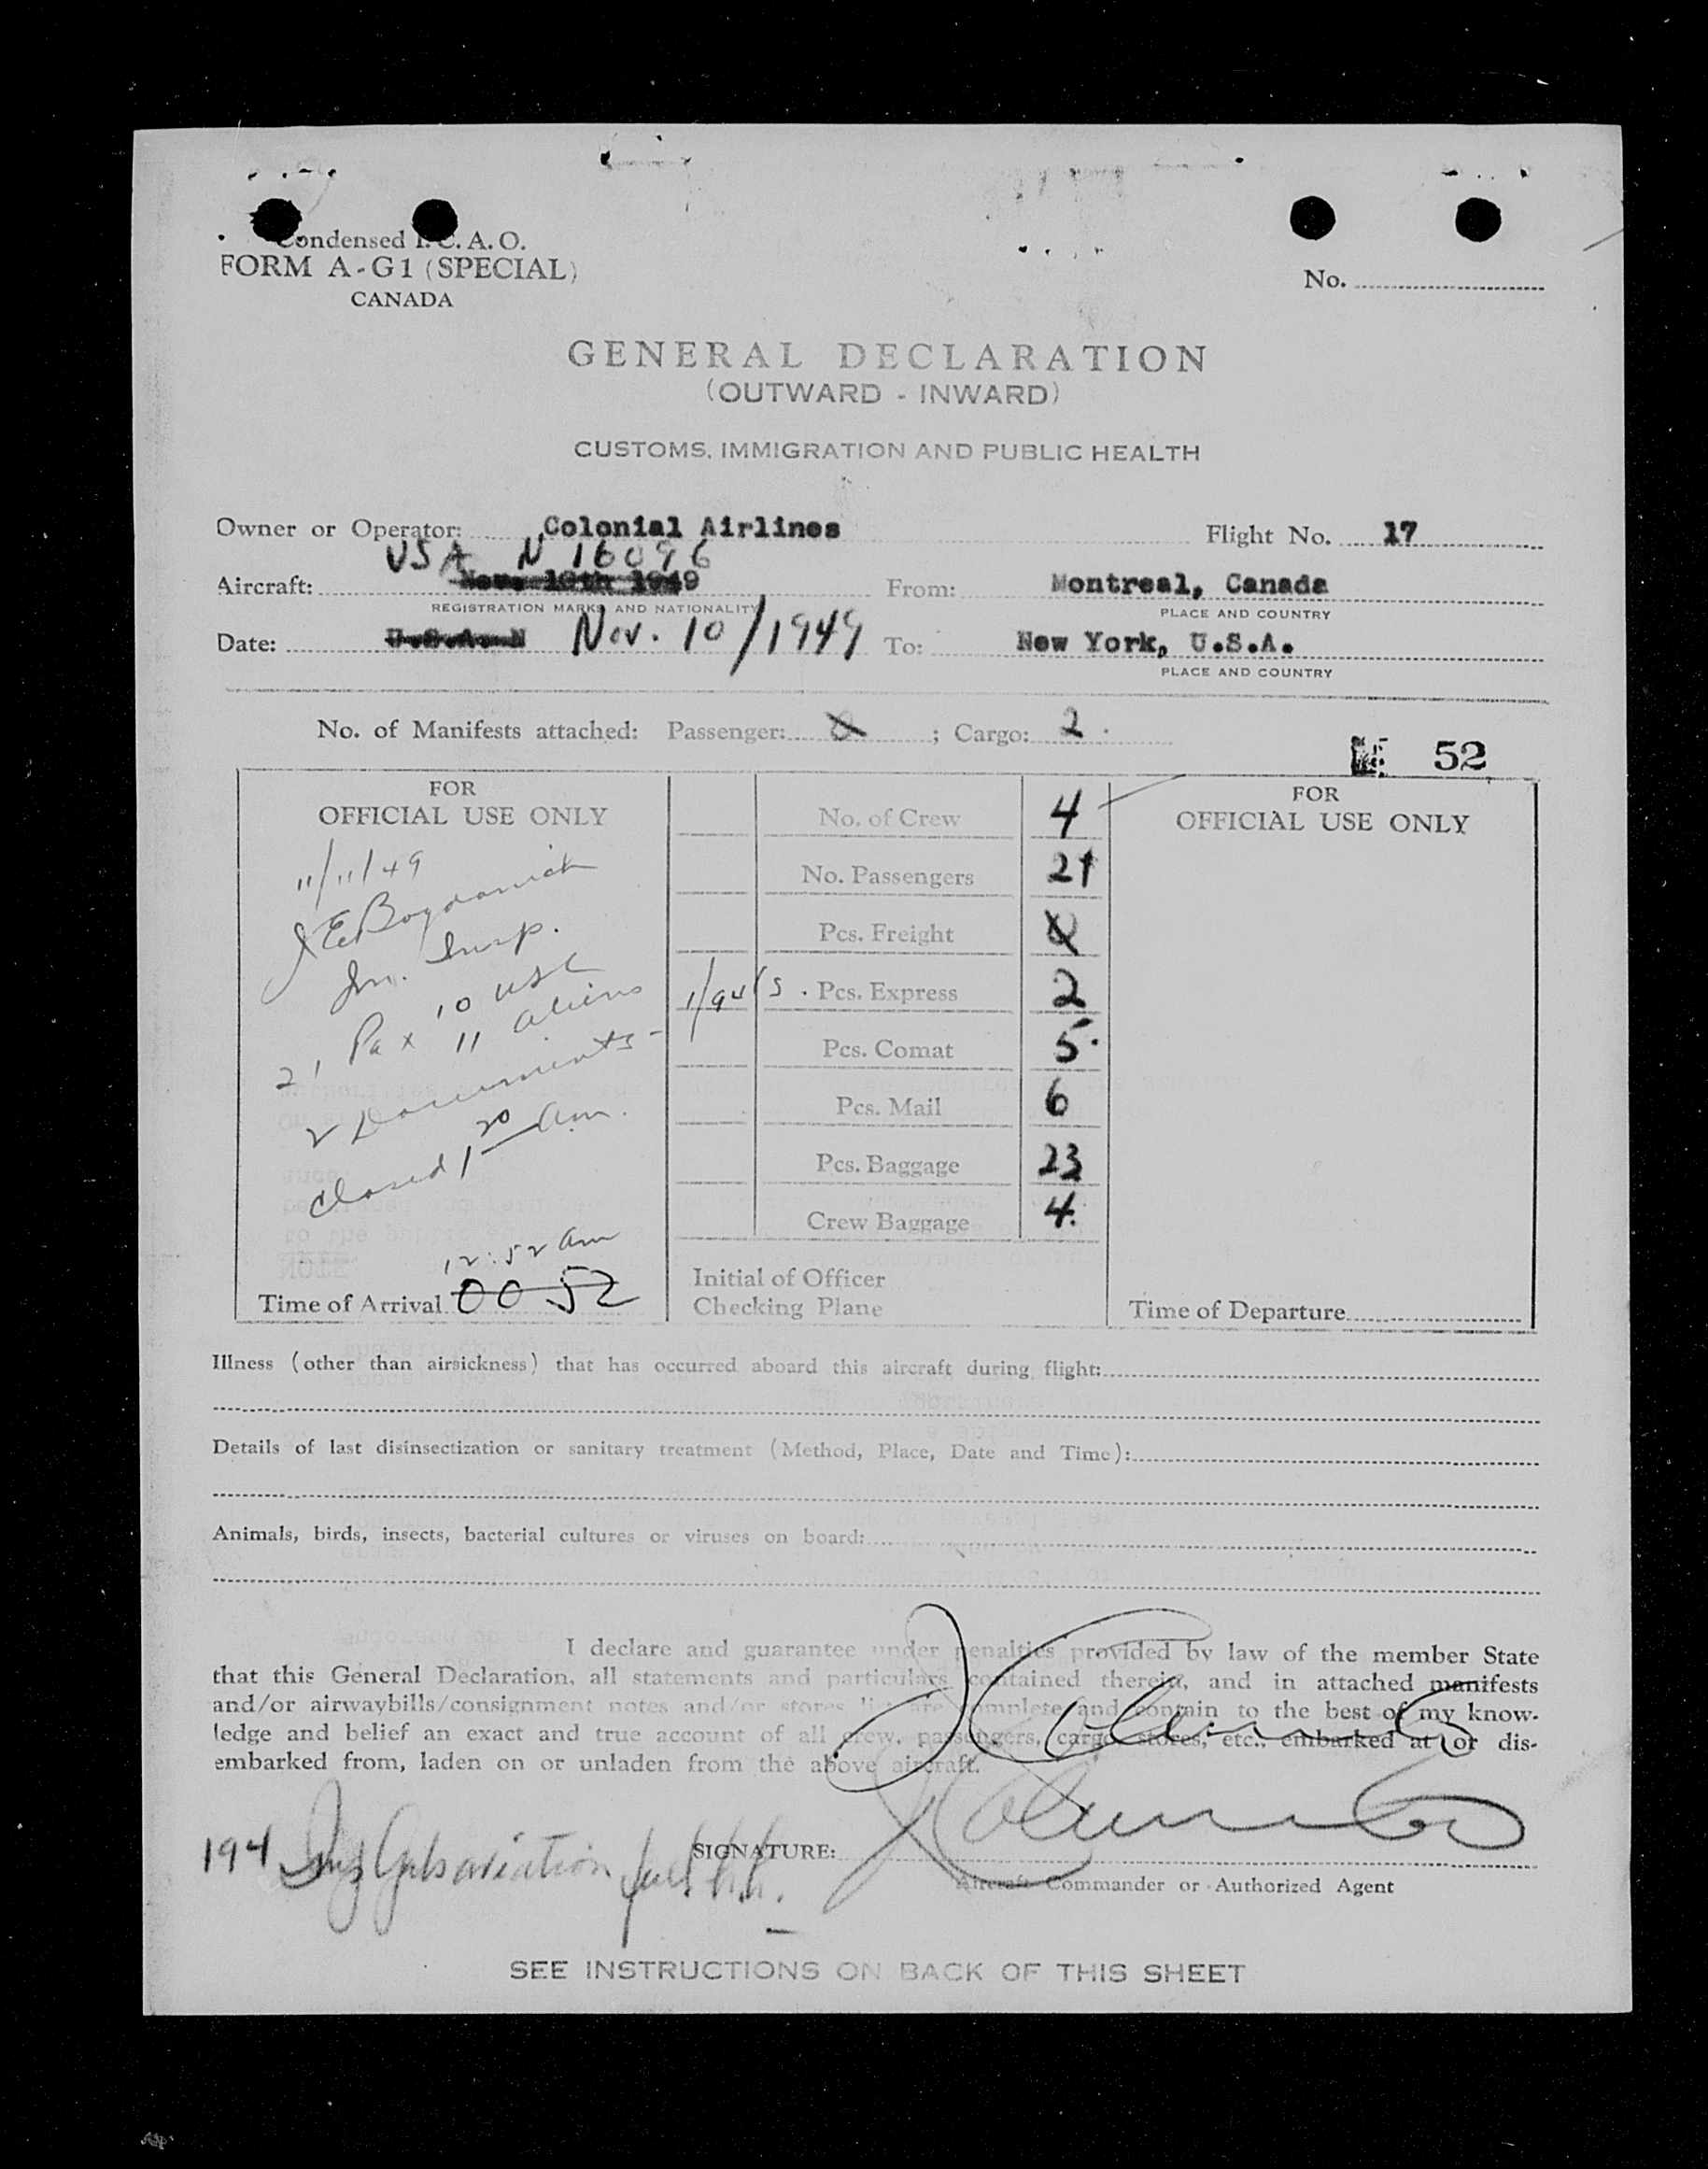 Condensed I. C. A. O.
FORM A-G1 (SPECIAL)
CANADA
No.
GENERAL DECLARATION
(OUTWARD - INWARD)
CUSTOMS, IMMIGRATION AND PUBLIC HEALTH
Owner or Operator: Colonial Airlines Flight No. 17
USA N 16096
Aircraft: Nov. 10th 1949 From: Montreal, Canada
REGISTRATION MARKS AND NATIONALITY PLACE AND COUNTRY
Date: U.S.A. N Nov. 10/1949 To: New York, U.S.A.
PLACE AND COUNTRY
No. of Manifests attached: Passenger: 0 ; Cargo: 2
52
FOR
OFFICIAL USE ONLY
11/11/49
J E Bogdanich
Im. Insp.
21 Pax 10 USC
11 aliens
2 Documents -
Closed 1 20 am.
12:52 am
Time of Arrival 00 52
No. of Crew 4
No. Passengers 21
Pcs. Freight 0
Pcs. Express 2
Pcs. Comat 5
Pcs. Mail 6
Pcs. Baggage 23
Crew Baggage 4
Initial of Officer
Checking Plane
FOR
OFFICIAL USE ONLY
Time of Departure
Illness (other than airsickness) that has occurred aboard this aircraft during flight:
Details of last disinsectization or sanitary treatment (Method, Place, Date and Time):
Animals, birds, insects, bacterial cultures or viruses on board:
I declare and guarantee under penalties provided by law of the member State
that this General Declaration, all statements and particulars contained therein, and in attached manifests
and/or airwaybills/consignment notes and/or stores list are complete and contain to the best of my know-
ledge and belief an exact and true account of all crew, passengers, cargo stores, etc., embarked at or dis-
embarked from, laden on or unladen from the above aircraft.
194 Gals aviation fuel
SIGNATURE:
Aircraft Commander or Authorized Agent
SEE INSTRUCTIONS ON BACK OF THIS SHEET